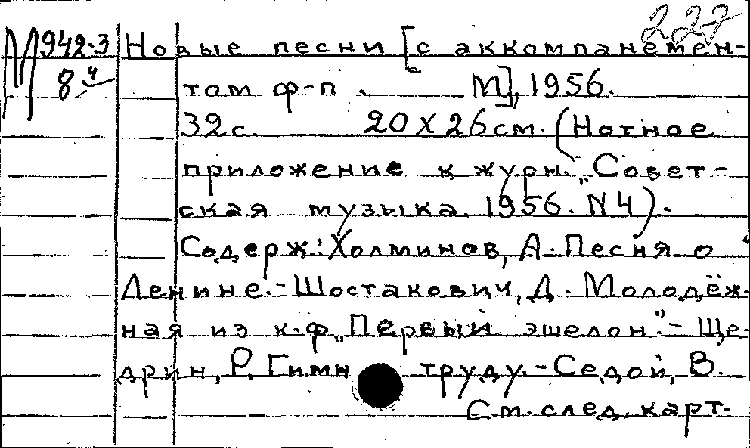 227
М942-3 Новые песни [с аккомпанемен-
8ч том ф-п. М], 1956.
32с. 20 х 26см. (Нотное
приложение к журн. „Совет-
ская музыка. 1956. N4).
Содерж: Холминов, А. Песня о
Ленине.-Шостакович, Д. Молодёж-
ная из к.ф „Первый эшелон".- Ще-
дрин, Р. Гимн труду.-Седой, В.
См. след. карт.